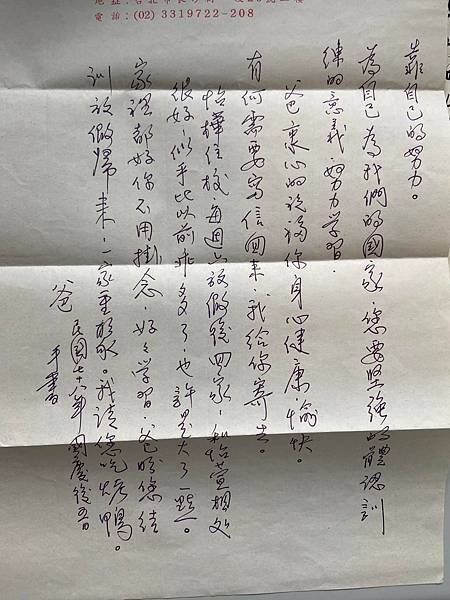 電話:(02) 3319722-208
靠自己的努力。
為自己為我們的國家,您要堅強的體認訓
練的意義,努力學習。
爸衷心的祝福你身心健康愉快。
有何需要寫信回來,我給你寄去。
怡樺住校,每週六放假後回家,和怡萱相處
很好,似乎比以前乖多了,也許是大了一點。
家裡都好你不用掛念,好々学習,爸盼您結
訓放假歸來,一家重 。我請您吃烤鴨。
爸 手書
民國七十 年國慶後 日